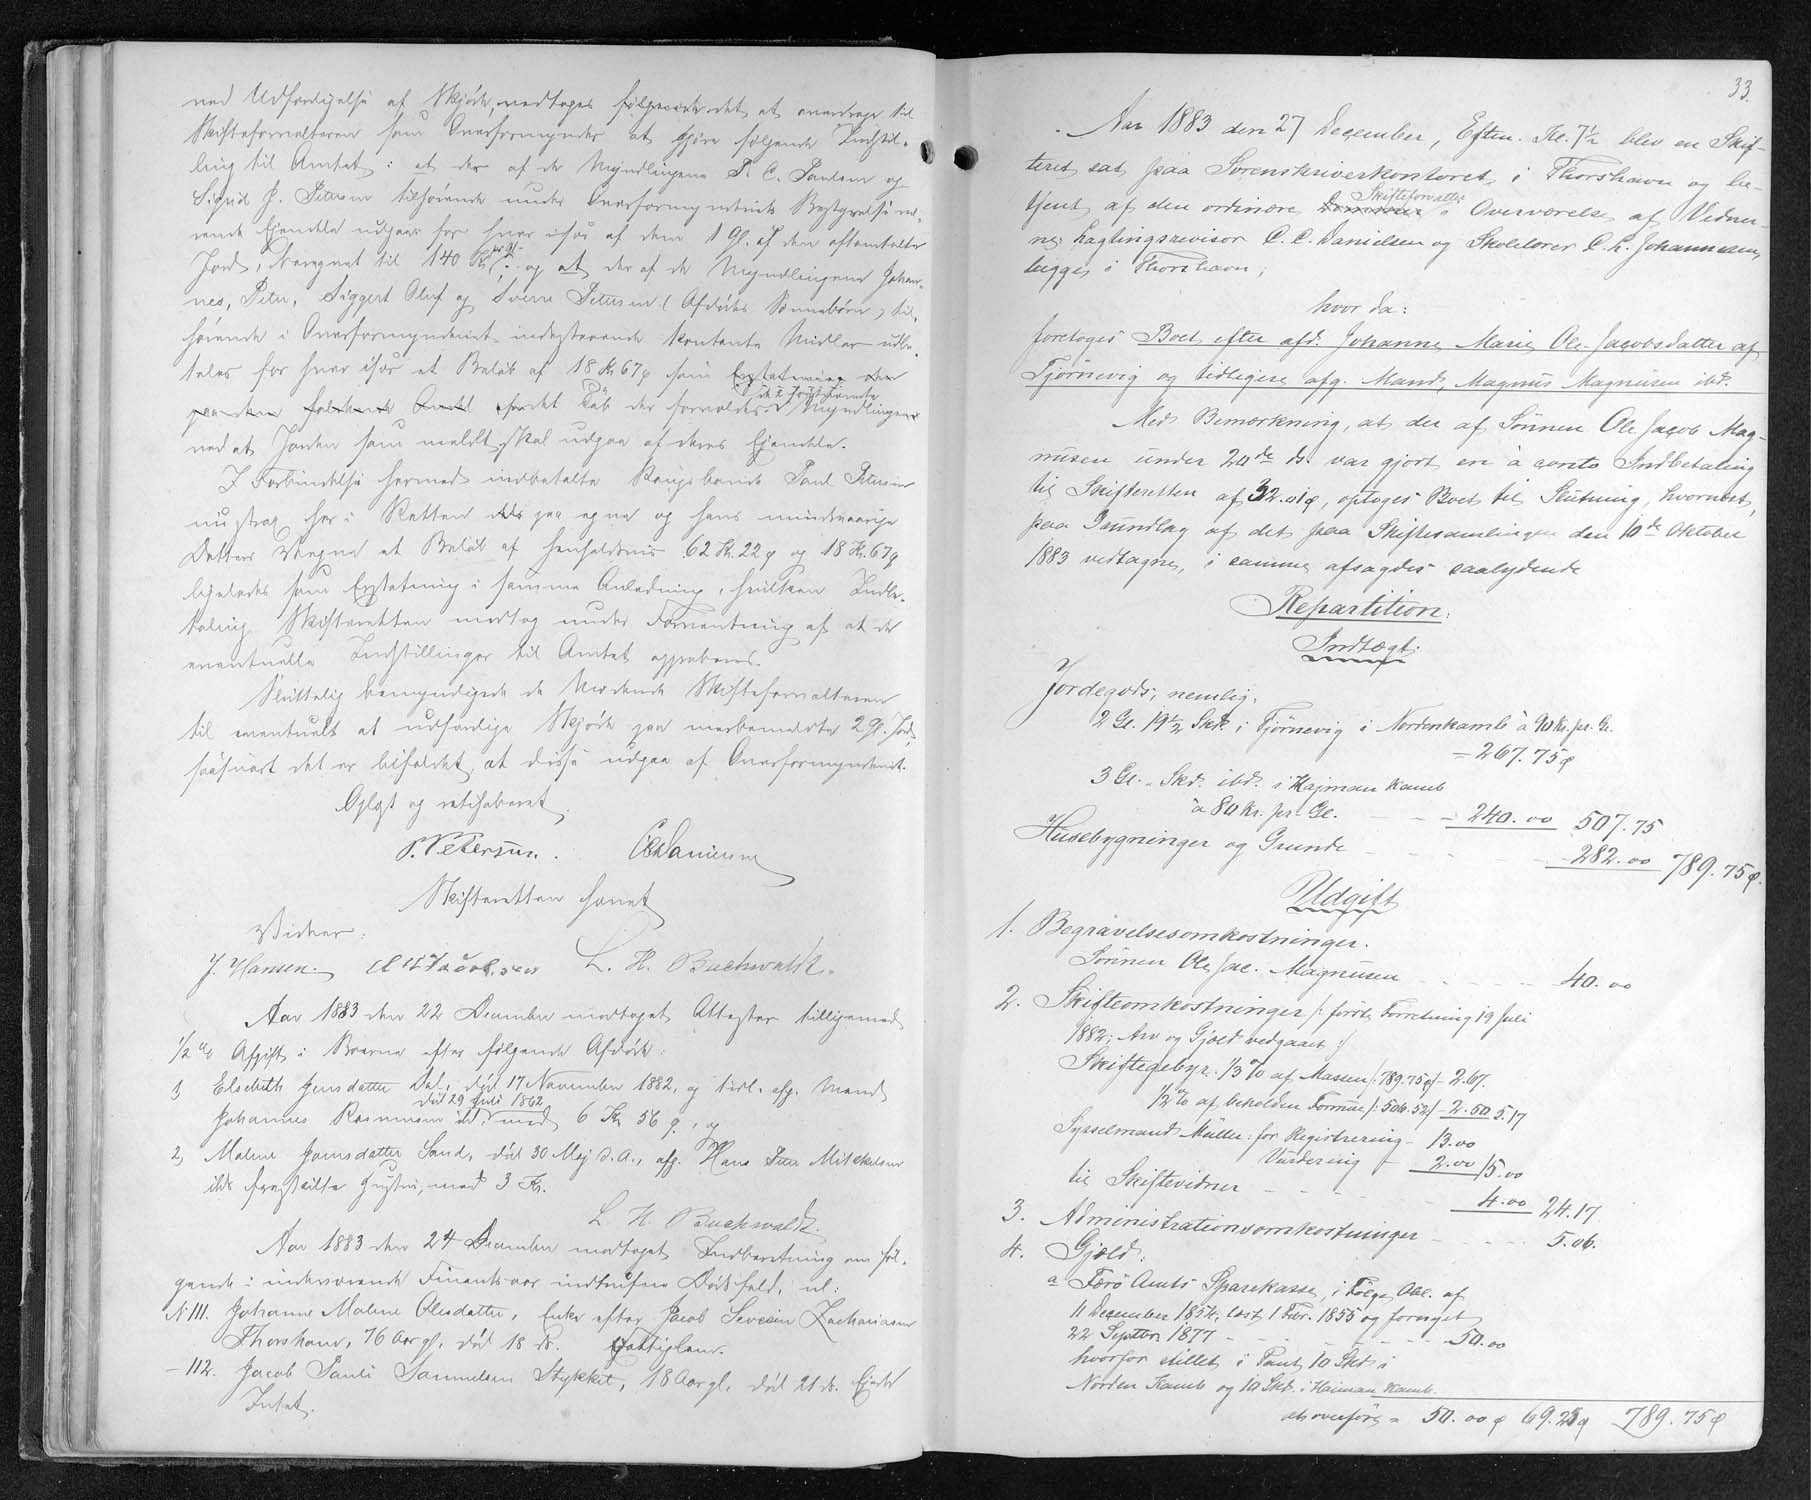 ved Udfærdigelse af Skjøde, vedtoges følgende at anmode til
Skifteforvalteren som Overformynder at gjøre følgende Indstil-
ling til Amtet: at der af de Myndlingene P. C. Paulsen og
Sigrid J. Petersen tilhørende under Overformynderiets Bestyrelse væ-
rende Ejendele udgaar for hver især af dem 1 Gl. af den afhandlede
Jord, beregnet til 140 Kr. pr. Gl. og at der af de Myndlingene Johan-
nes, Peter, Siggert Oluf og Sverre Petersen (Afdødes Sønnebørn) til-
hørende i Overformynderiet indestaaende kontante Midler udbe-
tales for hver især et Beløb af 18 Kr. 67 ø som Erstatning
det Tab der forvoldes de 2 førstnævnte Myndlinger
ved at Jorden som meldt skal udgaa af deres Ejendele.
I Forbindelse hermed indbetalte Kongsbonde Poul Petersen
nu strax her i Retten paa egne og hans mindreaarige
Datters Vegne et Beløb af henholdsvis 62 Kr. 22 ø og 18 Kr. 67 ø
ligeledes som Erstatning i samme Anledning, hvilken Indbe-
taling Skifteretten modtog under Forventning af at de
eventuelle Indstillinger til Amtet approberes.
Sluttelig bemyndigede de Mødende Skifteforvalteren
til eventuelt at udfærdige Skjøde paa merbemeldte 2 Gl. Jord,
saasnart det er bifaldet, at disse udgaa af Overformynderiet.
Oplæst og ratihaberet.
P. Petersen. C. C. Danielsen
Skifteretten hævet
Vidner:
J. Hansen. Jacobsen L. H. Buchwaldt.
Aar 1883 den 22 December modtoget Attester tilligemed
1/2 % Afgift i Boerne efter følgende Afdøde:
1) Elsebeth Jensdatter Dal, død 17 November 1882, og tidl. afg. Mand
død 29 Juli 1862
Johannes Rasmussen ibd., med 6 Kr. 56 ø, og
2) Malene Joensdatter Sand, død 30 Maj d. A., afg. Hans Peter Mikkelsen
ibds fraskilte Hustru, med 3 Kr.
L. H. Buchwaldt.
Aar 1883 den 24 December modtoget Indberetning om føl-
gende i indeværende Finantsaar indtrufne Dødsfald, nl:
N 111. Johanne Malene Olesdatter, Enke efter Jacob Severin Zachariasen
Thorshavn, 76 Aar gl. død 18 ds. Fattiglem.
— 112. Jacob Pauli Samuelsen Stykket, 18 Aar gl. død 21 ds. Ejede
Intet.
33.
Aar 1883 den 27 December, Efterm. Kl. 7½ blev en Skif-
teret sat paa Sorenskriverkontoret i Thorshavn og be-
tjent af den ordinære Skifteforvalter i Overværelse af Vidner-
ne: Lagtingsrevisor C. C. Danielsen og Skolelærer C. L. Johannesen,
begge i Thorshavn;
hvor da:
foretoges Boet efter afd. Johanne Marie Ole-Jacobsdatter af
Tjørnevig og tidligere afg. Mand, Magnus Magnusen ibd.
Med Bemærkning, at der af Sønnen Ole Jacob Mag-
nusen under 24de ds. var gjort en à conto Indbetaling
til Skifteretten af 32.01ø, optoges Boet til Slutning, hvornæst,
paa Grundlag af det paa Skiftesamlingen den 10de Oktober
1883 vedtagne, i samme afsagdes saalydende
Repartition:
Indtægt:
Jordegods, nemlig:
2 Gl. 19½ Skd. i Tjørnevig i Nordenkamb à 90 Kr. pr. Gl.
= 267.75ø
3 Gl. „ Skd. ibd. i Hajman Kamb
à 80 Kr. pr. Gl. — — = 240.00 507.75
Husebygninger og Grunde — — — — 282.00 789.75ø.
Udgift
1. Begravelsesomkostninger.
Sønnen Ole Jac. Magnusen — — — 40.00
2. Skifteomkostninger /: første Forretning 19 Juli
1882; Arv og Gjæld vedgaaet :/
Skiftegebyr: 1/3 % af Massen /: 789.75ø/ - 2.67.
1/2 % af beholden Formue /: 506.52/ - 2.50 5.17
Sysselmand Müller: for Registrering - 13.00
Vurdering - 2.00 15.00
til Skiftevidner — — — — 4.00 24.17
3. Administrationsomkostninger — — — 5.06.
4. Gjæld:
a Færø Amts Sparekasse, i Følge Obl. af
11 December 1854, læst 1 Febr. 1855 og fornyet
22 Septbr. 1877 — — — — — 50.00
hvorfor stillet i Pant 10 Skd. i
Norden Kamb og 10 Skd. i Haiman Kamb.
at overføre = 50.00 ø 69.23ø 789.75ø